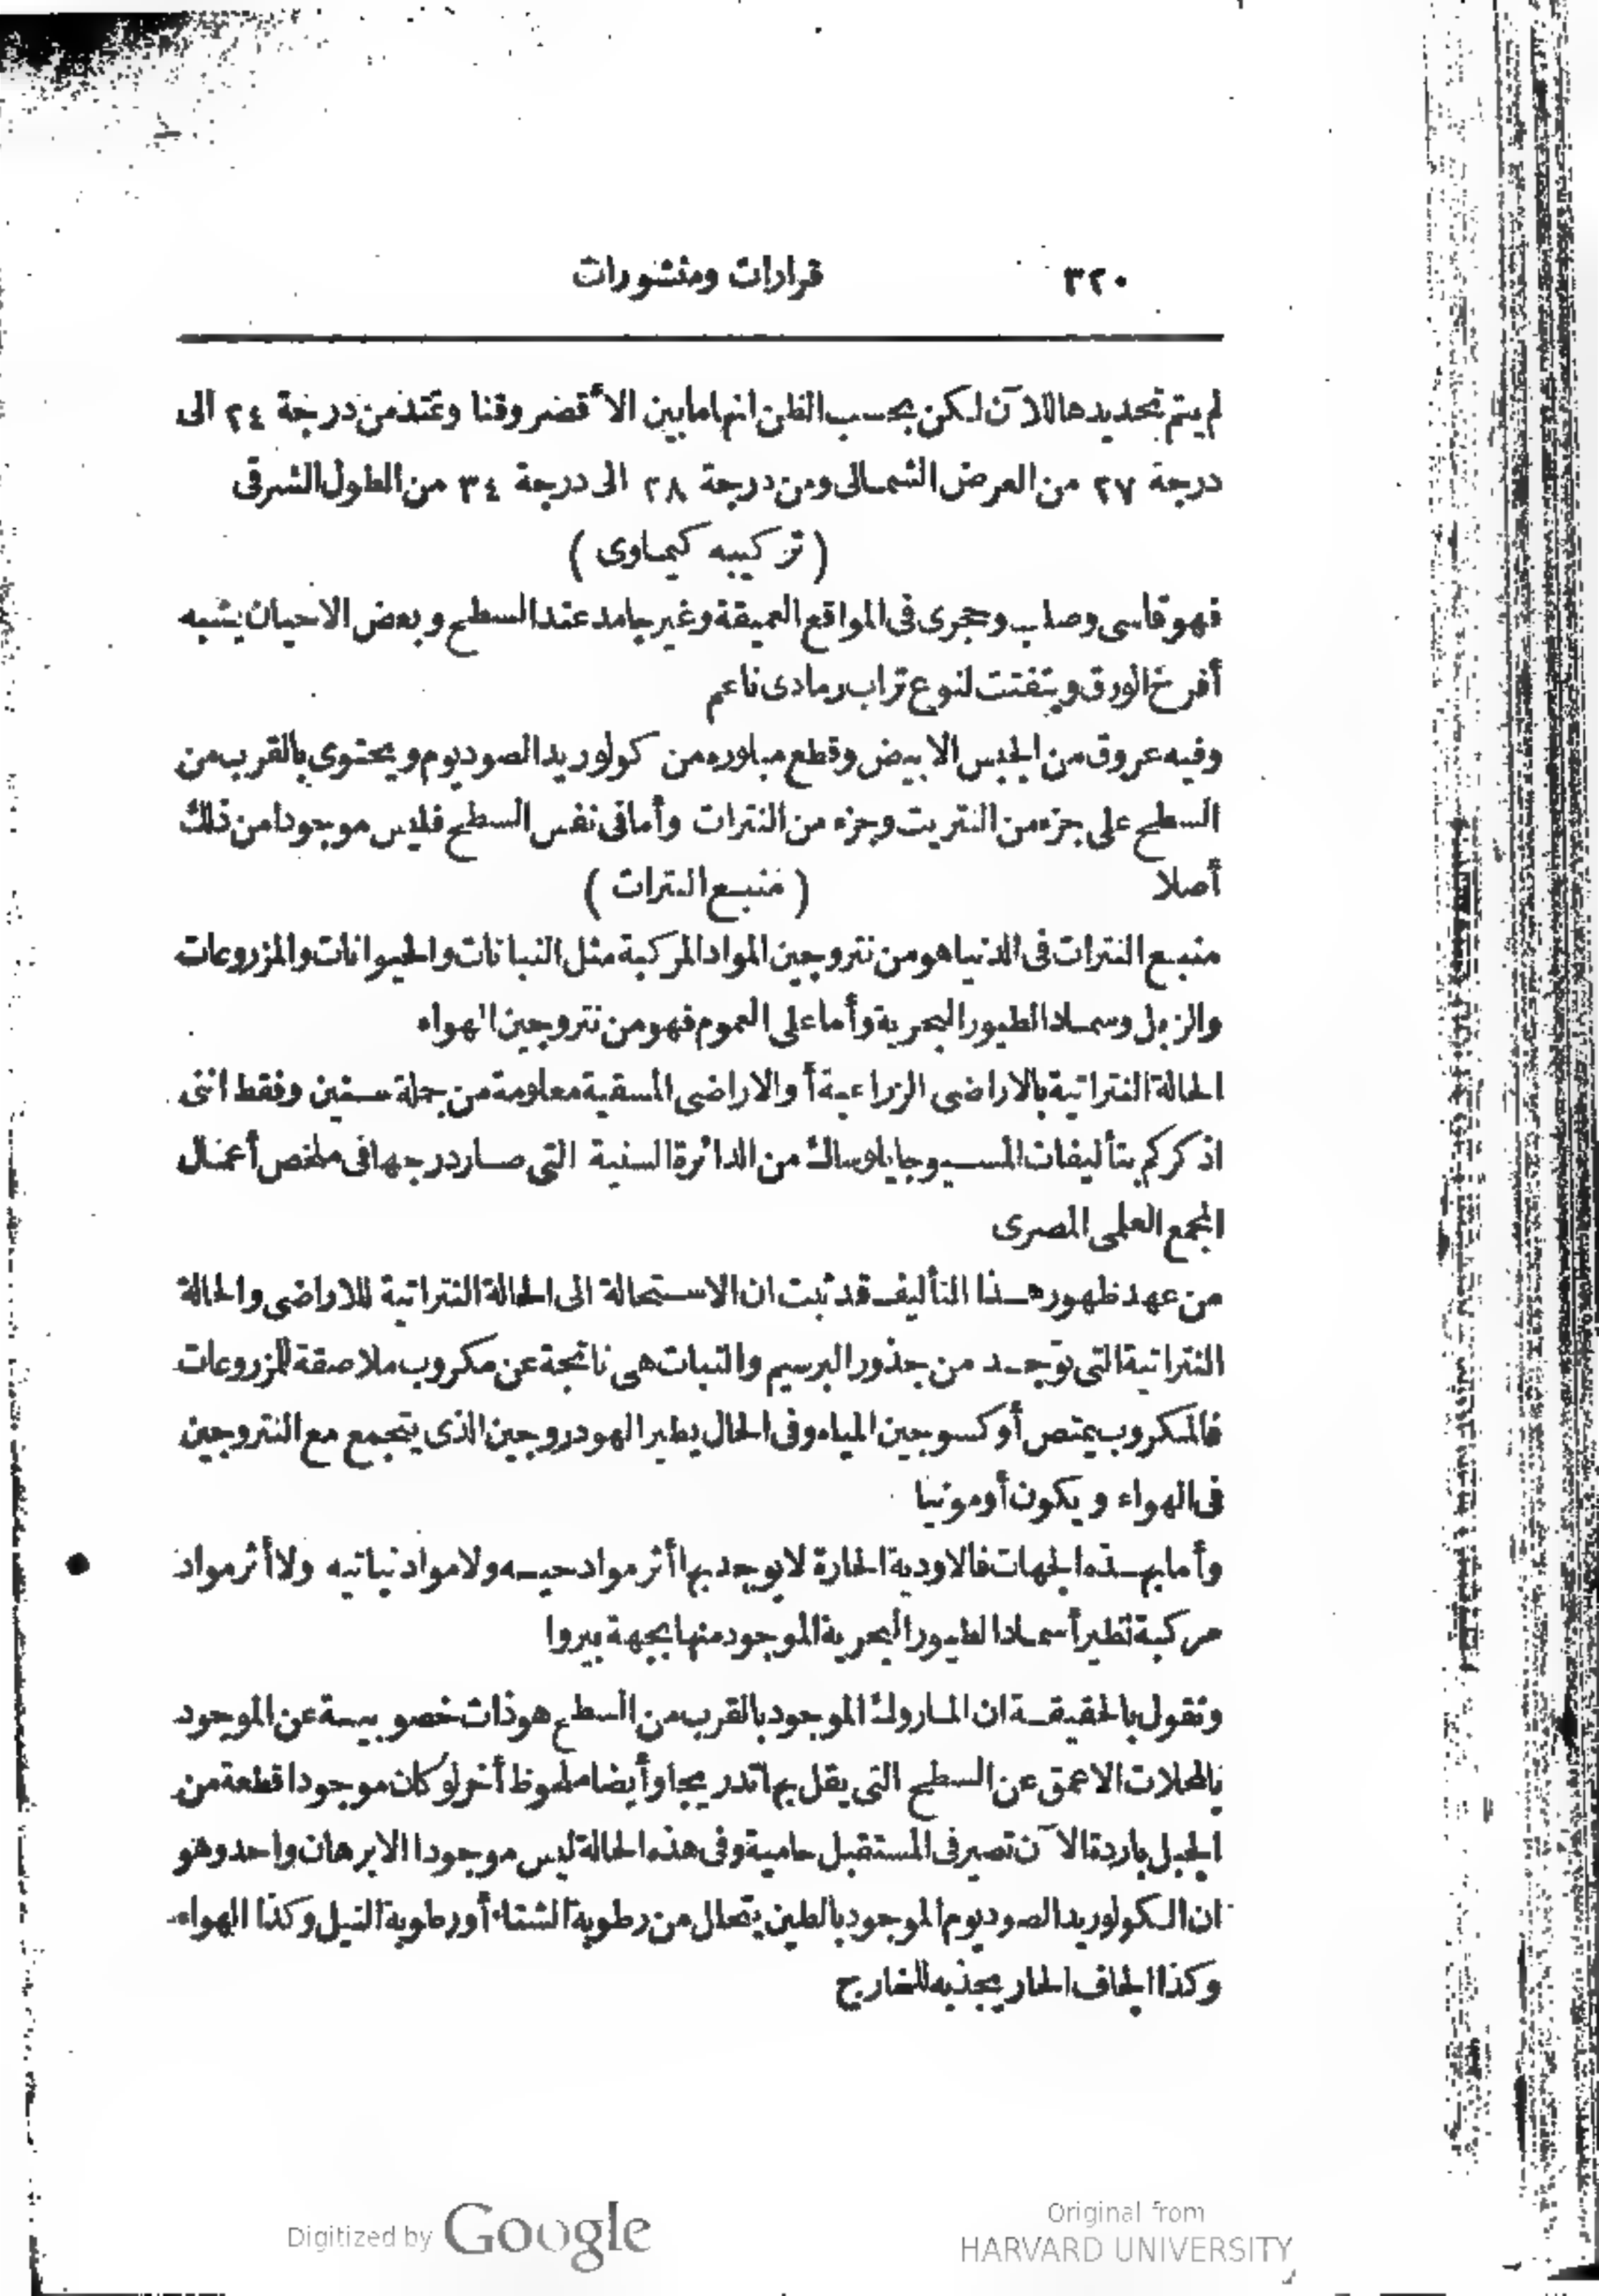 ٣٢٠ قرارات ومنشورات
لم يتم تحديدها للآن لكن بحسب الظن انها مابين الأقضر وقنا وتمتد من درجة ٢٤ الى
درجة ٢٧ من العرض الشمالى ومن درجة ٢٨ الى درجة ٣٤ من الطول الشرقى
( تركيبه كيماوى )
فهو قاسى وصلب وحجرى فى المواقع العميقة وغير جامد عند السطح وبعض الاحيان يشبه
أفرخ الورق ويتفتت لنوع تراب رمادى ناعم
وفيه عروق من الجبس الابيض وقطع مبلوره من كولوريد الصوديوم ويحتوى بالقرب من
السطح على جزء من النتريت وجزء من النترات وأما فى نفس السطح فليس موجودا من ذلك
أصلا ( منبع النترات )
منبع النترات فى الدنيا هو من نتروجين المواد المركبة مثل النباتات والحيوانات والمزروعات
والزبل وسماد الطيور البحرية وأما على العموم فهو من نتروجين الهواء
الحالة النتراتية بالاراضى الزراعية أو الاراضى المسقية معلومة من جملة سنين وفقط اننى
اذكركم بتأليفات المسيو جايلوساك من الدائرة السنية التى صار درجها فى ملخص أعمال
المجمع العلمى المصرى
من عهد ظهور هذا التأليف قد ثبت ان الاستحالة الى الحالة النتراتية للاراضى والحالة
النتراتية التى توجد من جذور البرسيم والنبات هى ناتجة عن مكروب ملاصقة للمزروعات
فالمكروب يمتص أوكسوجين المياه وفى الحال يطير الهودروجين الذى يتجمع مع النتروجين
فى الهواء ويكون أومونيا
وأما بهذه الجهات فالاودية الحارة لا يوجد بها أثر مواد حيه ولا مواد نباتيه ولا أثر مواد
مركبة نظير أسماد الطيور البحرية الموجود منها بجهة بيروا
ونقول بالحقيقة ان الماروك الموجود بالقرب من السطح هو ذات خصوبية عن الموجود
بالمحلات الاعمق عن السطح التى يقل بها تدريجا وأيضا ملحوظ أخر لو كان موجودا قطعة من
الجبل باردة الآن تصير فى المستقبل حامية وفى هذه الحالة ليس موجودا الا برهان واحد وهو
ان الكولوريد الصوديوم الموجود بالطين يتحلل من رطوبة الشتاء أو رطوبة النيل وكذا الهواء
وكذا الجاف الحار يجذبه للخارج
Digitized by Google
Original from
HARVARD UNIVERSITY